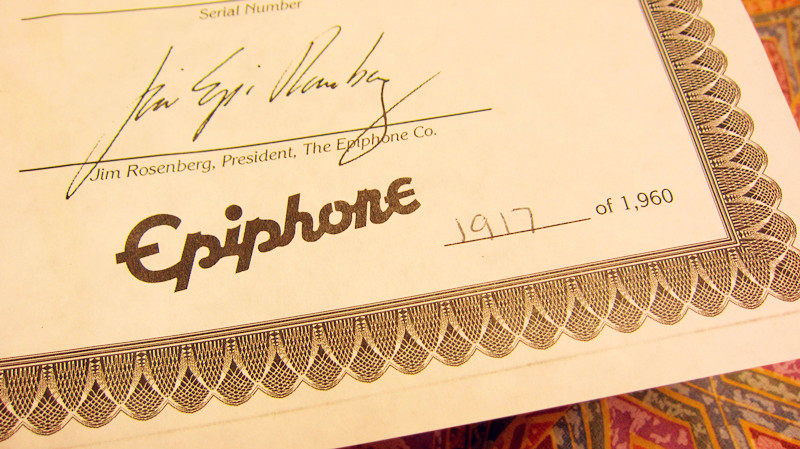 Serial Number
Jim "Epi" Rosenberg
Jim Rosenberg, President, The Epiphone Co.
Epiphone
1917 of 1,960